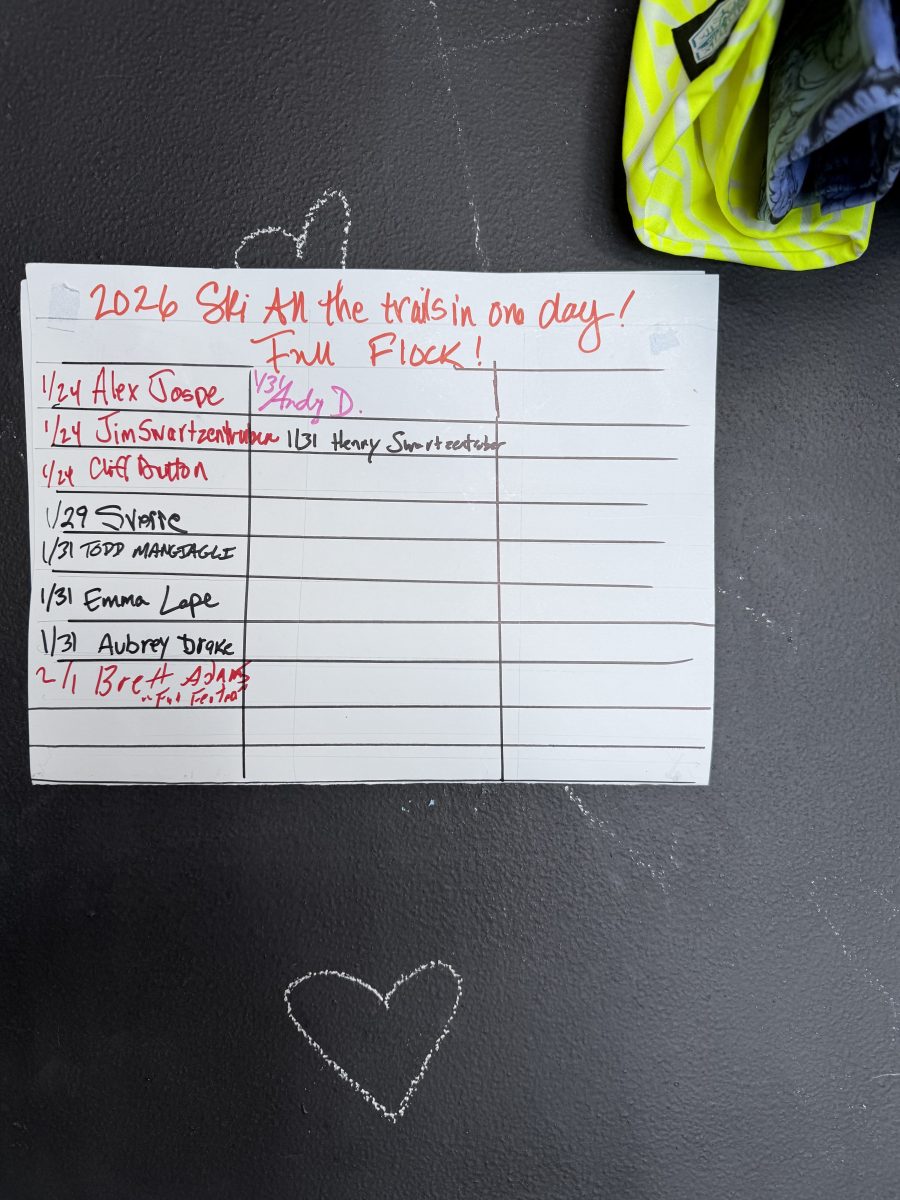 2026 Ski All the trails in one day!
Full Flock!
1/24 Alex Jospe
1/24 Jim Swartzentruber
1/24 Cliff Button
1/29 Sverre
1/31 TODD MANGIAGLI
1/31 Emma Lape
1/31 Aubrey Drake
2/1 Brett Adams
"Full
1/31 Andy D.
1/31 Henry Swartzentruber